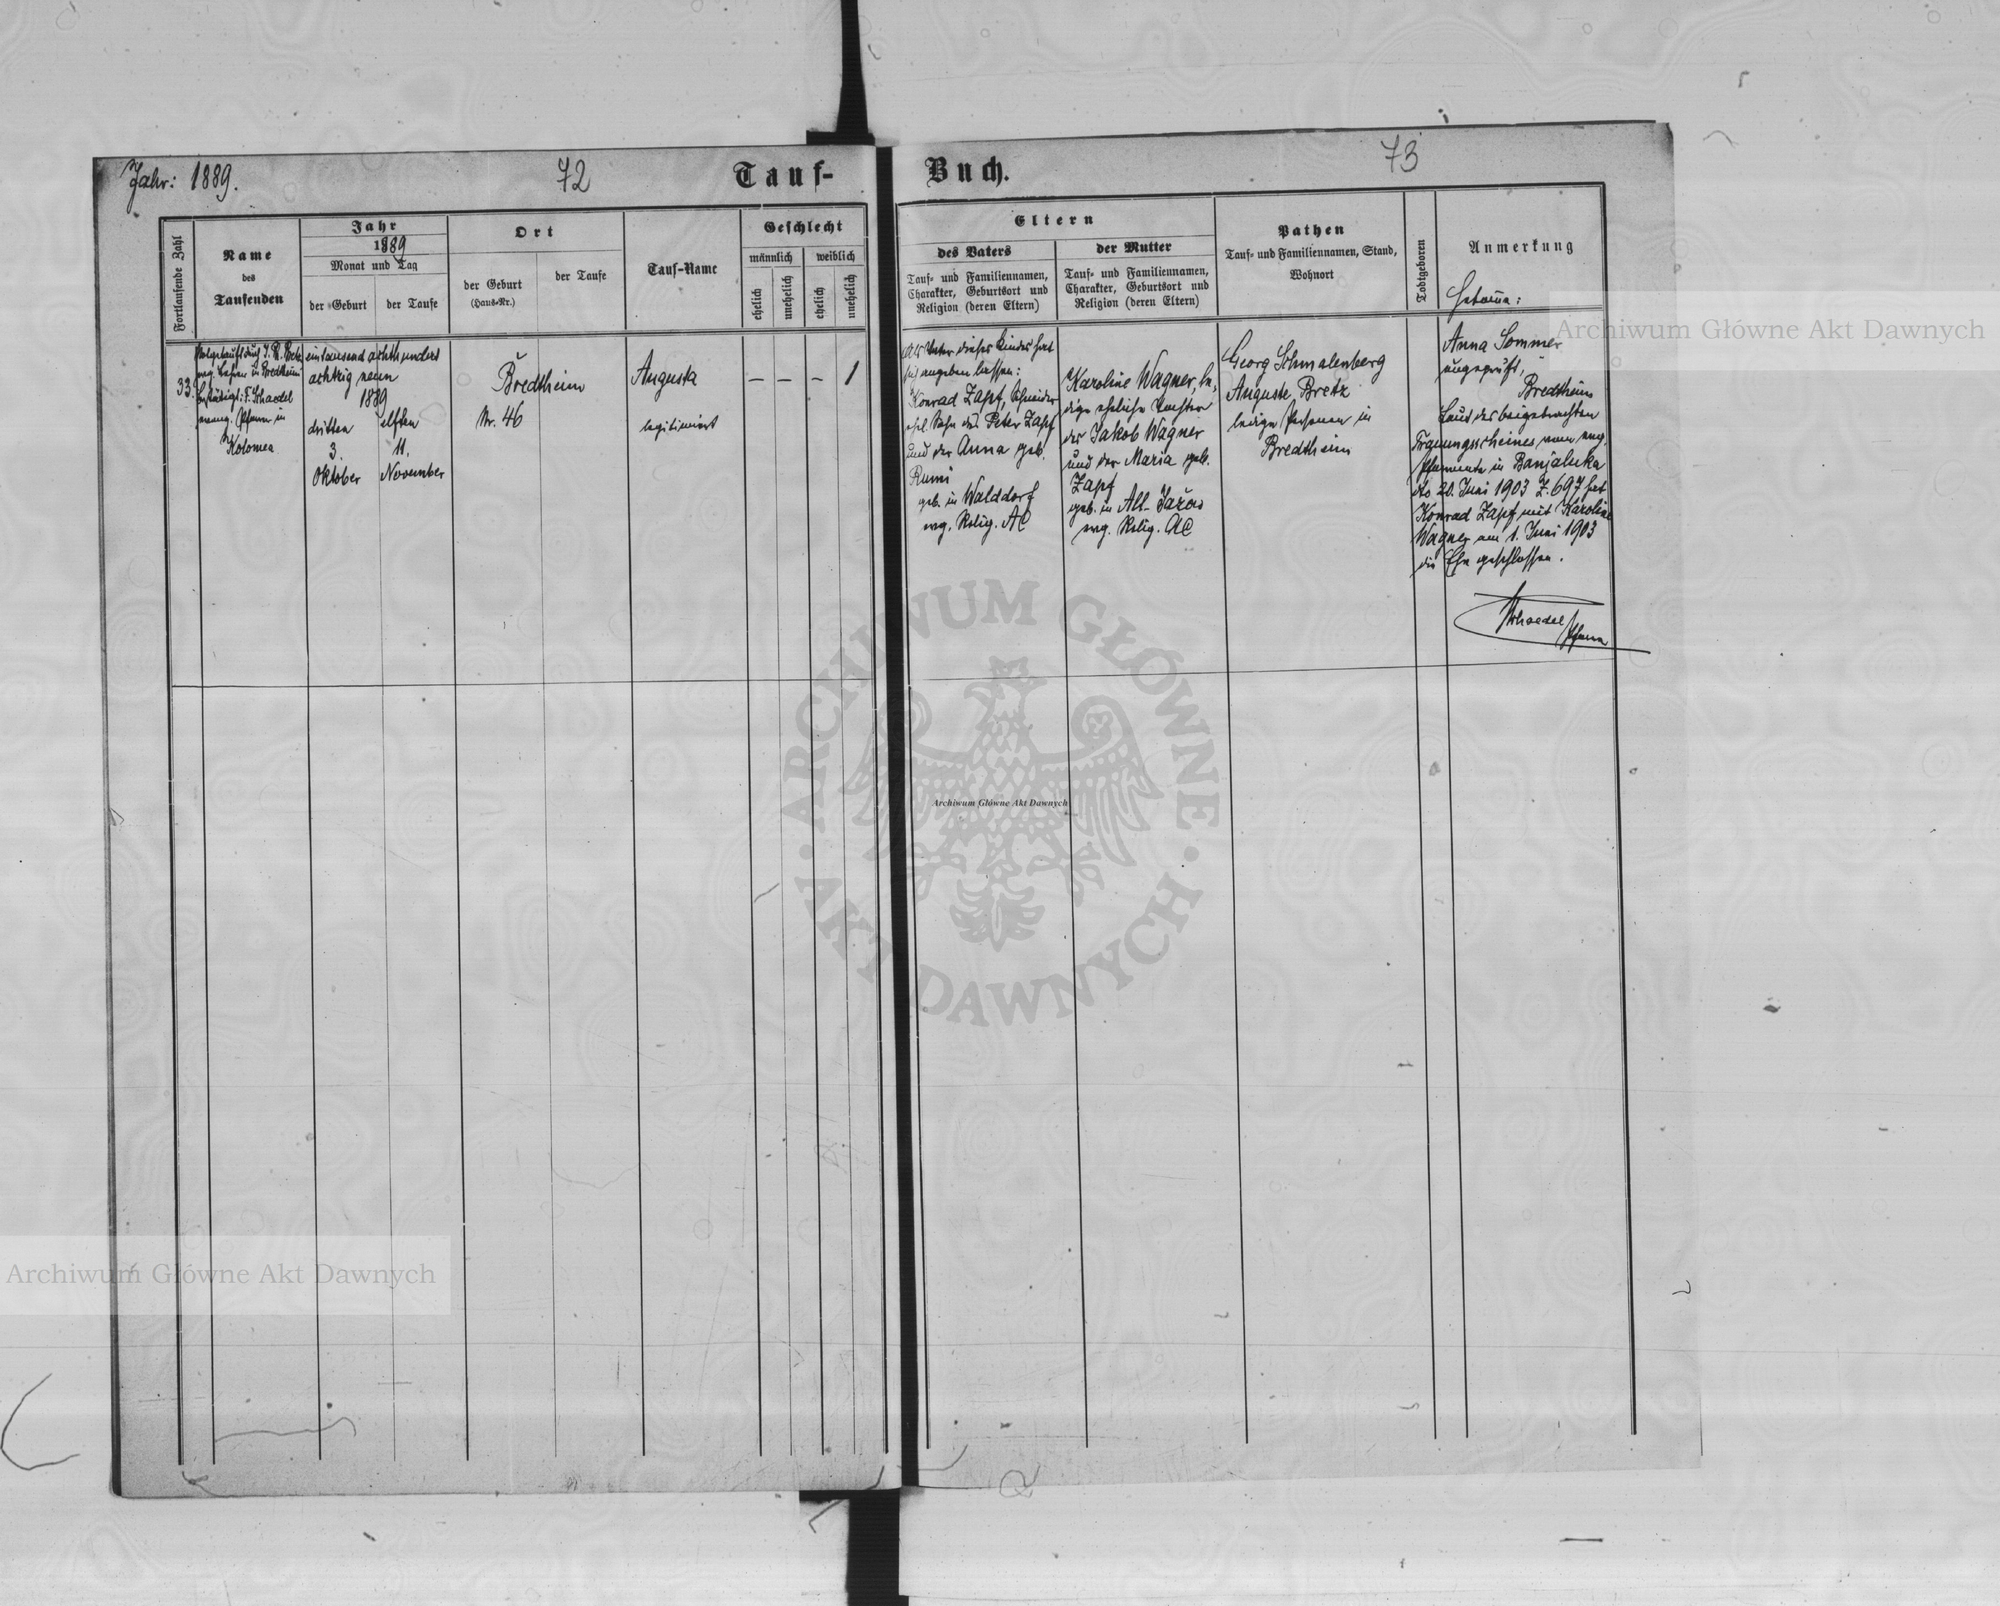 Jahr: 1889.
72
Tauf-
Buch.
73
Fortlaufende Zahl
Name
des
Taufenden
Jahr
1889
Monat und Tag
der Geburt
der Taufe
Ort
der Geburt
(Haus-Nr.)
der Taufe
Tauf-Name
Geschlecht
männlich
weiblich
ehelich
unehelich
ehelich
unehelich
Eltern
des Vaters
Tauf- und Familiennamen,
Charakter, Geburtsort und
Religion (deren Eltern)
der Mutter
Tauf- und Familiennamen,
Charakter, Geburtsort und
Religion (deren Eltern)
Pathen
Tauf- und Familiennamen, Stand,
Wohnort
Todtgeboren
Anmerkung
33.
evg. Lehrer in Bredtheim
Bestätigt: F. Schaedel
evang. Pfarrer in
Kolomea
eintausend achthundert
achtzig neun
1889
dritten
3.
Oktober
elften
11.
November
Bredtheim
Nr. 46
Augusta
legitimiert
– – – 1
Als Vater dieses Kindes hat
sich angeben lassen:
Konrad Zapf, Schneider
ehel. Sohn des Peter Zapf
und der Anna geb.
Rumi
geb. in Walddorf
evg. Relig. AC
Karoline Wagner, le-
dige eheliche Tochter
des Jakob Wagner
und der Maria geb.
Zapf
geb. in Alt-Jažow
evg. Relig. AC
Georg Schmalenberg
Auguste Bretz
ledige Personen in
Bredtheim
Hebamme:
Anna Sommer
ungeprüft,
Bredtheim
Laut des beigebrachten
Trauungsscheines vom evg.
Pfarramte in Banjaluka
dto 20. Juni 1903 Z. 697 hat
Konrad Zapf mit Karoline
Wagner am 1. Juni 1903
die Ehe geschlossen.
Schaedel
Pfarrer
Archiwum Główne Akt Dawnych
ARCHIWUM GŁÓWNE
AKT DAWNYCH
Archiwum Główne Akt Dawnych
Archiwum Główne Akt Dawnych